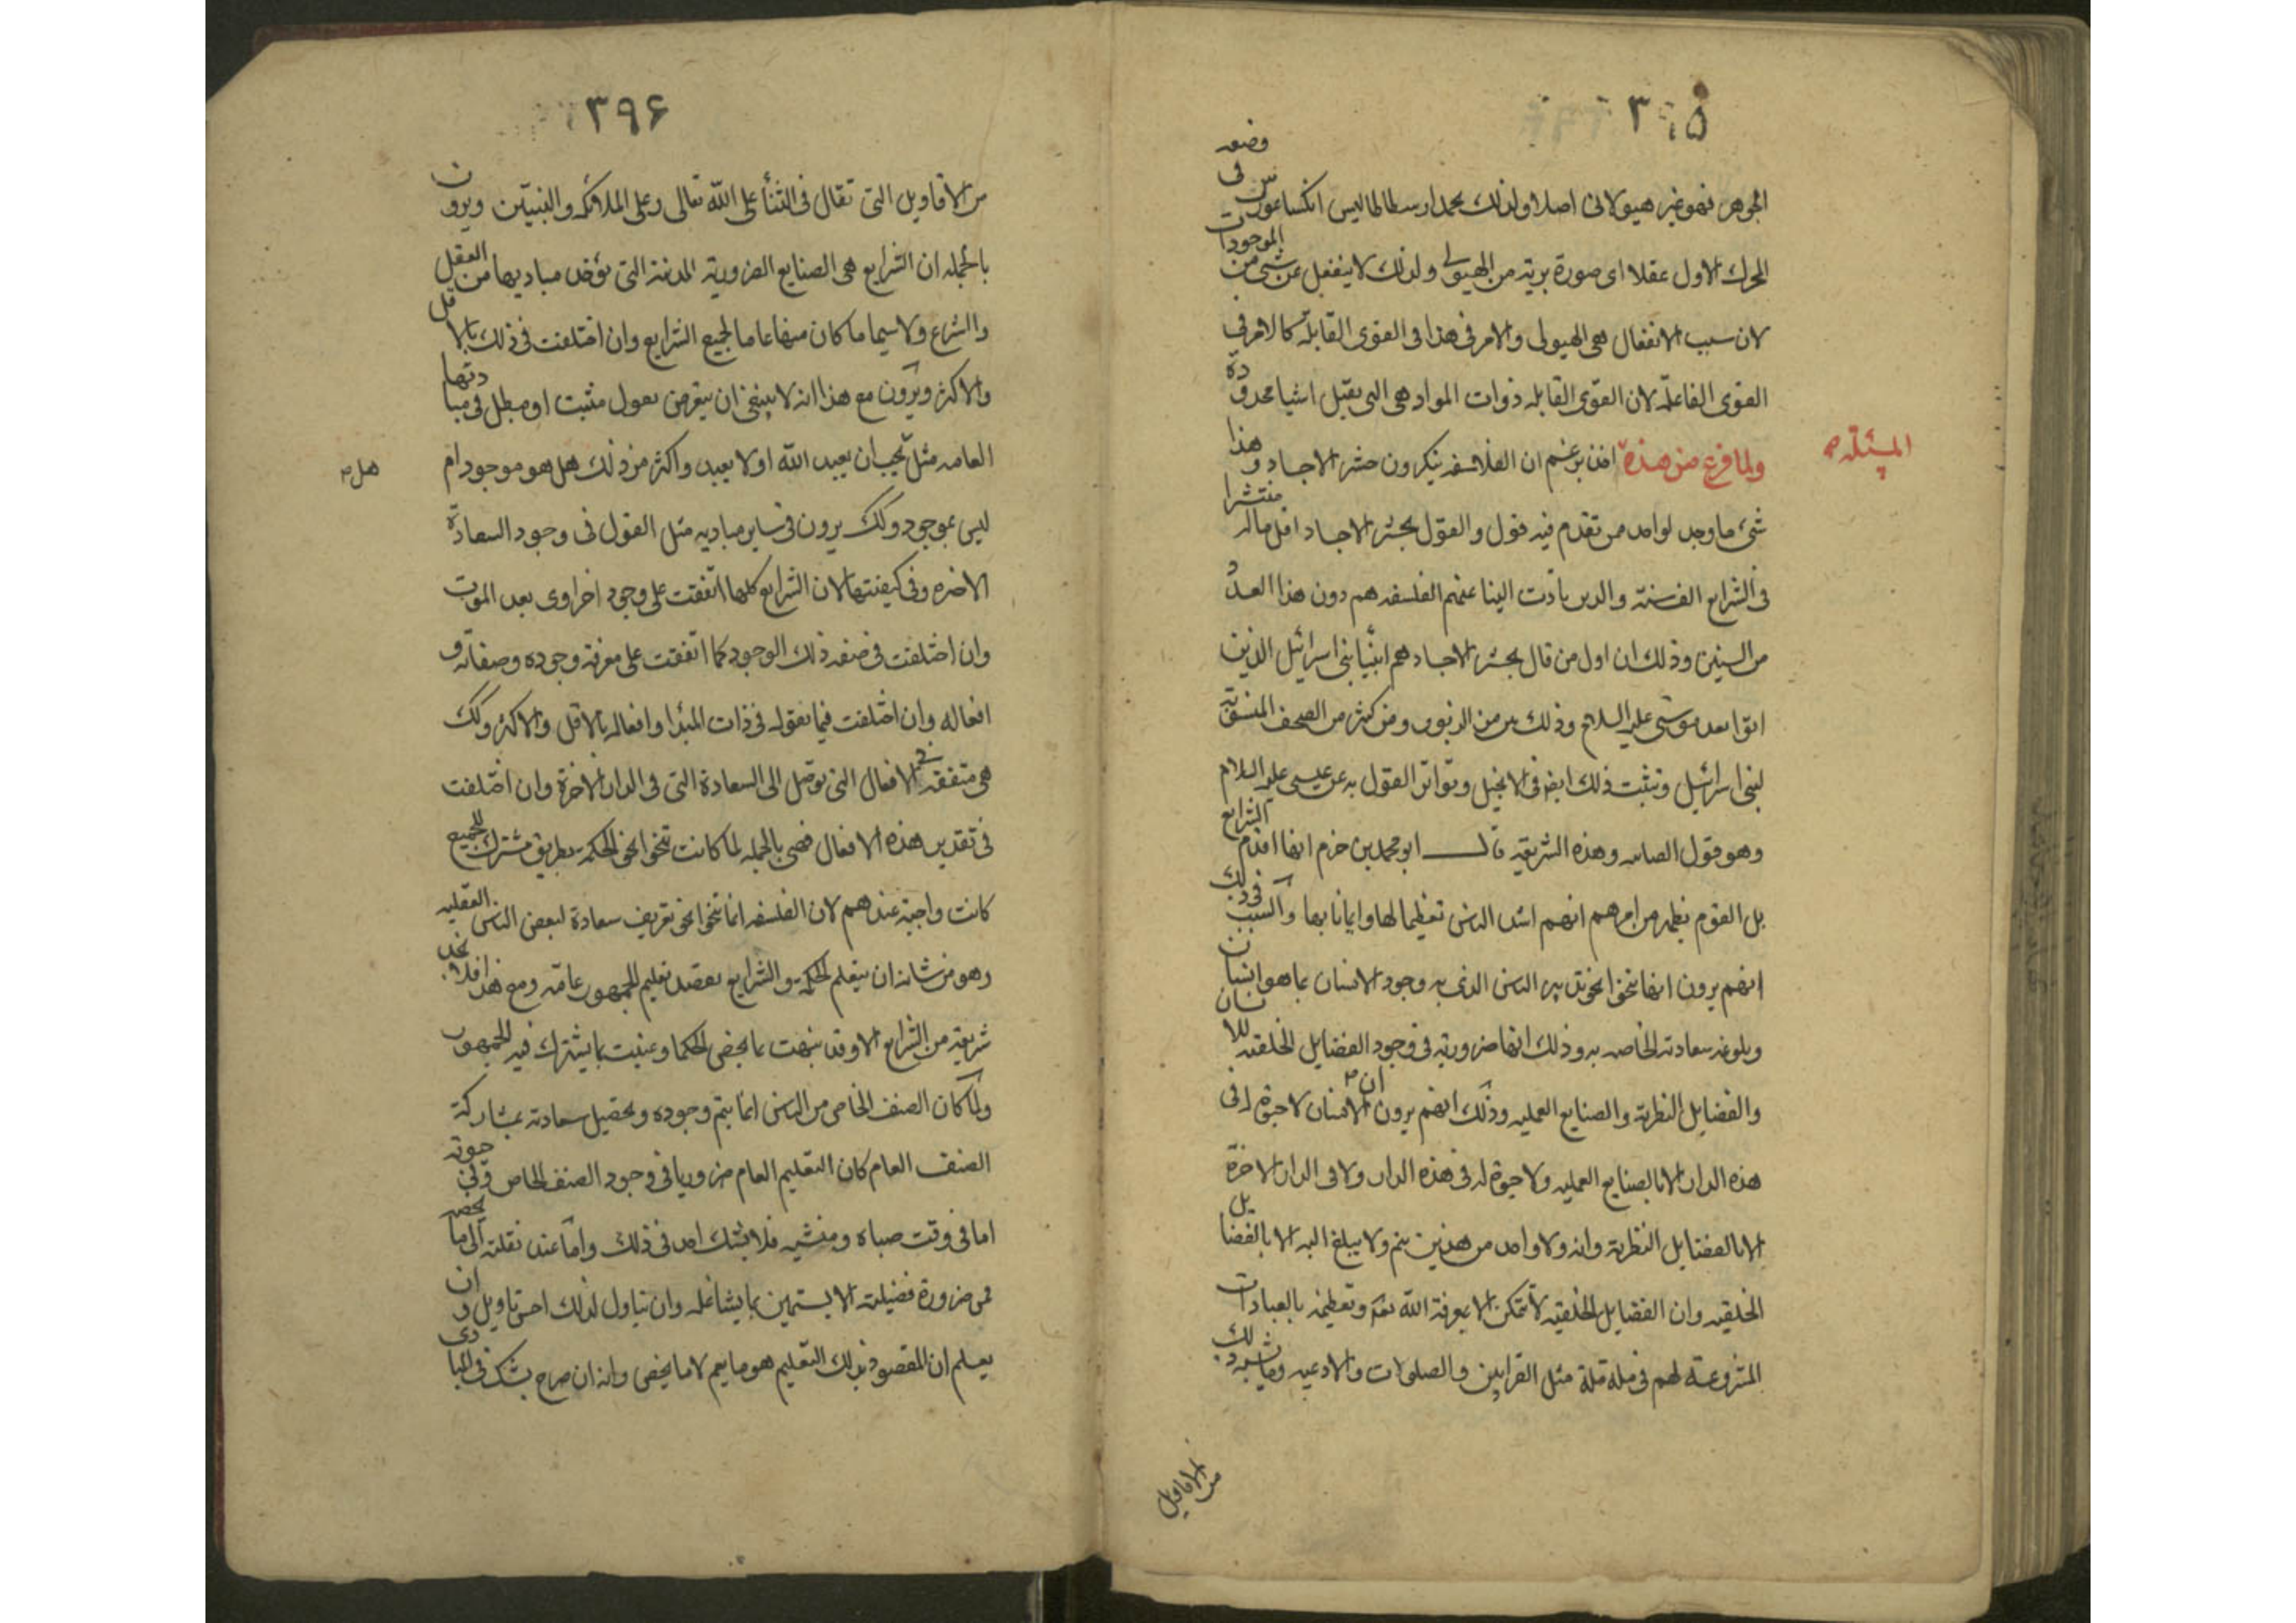 ٣٩٥
الجوهر فهو غير هيولانى اصلا ولذلك يحمد ارسطاطاليس انكساغورس فى وضعه
المحرك الاول عقلا اى صورة برية من الهيولى ولذلك لا ينفعل عن شى من الموجودات
لان سبب الانفعال هى الهيولى والامر فى هذا فى القوى القابلة كالامر فى
القوى الفاعلة لان القوى القابله ذوات المواد هى التى تقبل اشيا محدودة
المسئلة
ولما فرغ من هذه اخذ يزعم ان الفلاسفه ينكرون حشر الاجساد وهذا
شى ما وجد لواحد ممن تقدم فيه قول والقول بحشر الاجساد اقل ماله منتشرا
فى الشرايع الف سنة والذين تأدت الينا عنهم الفلسفه هم دون هذا العدد
من السنين وذلك ان اول من قال بحشر الاجساد هم انبيا بنى اسرائيل الذين
اتوا بعد موسى عليه السلام وذلك بين من الزبور ومن كثير من الصحف المنسوبة
لبنى اسرائيل وثبت ذلك ايضا فى الانجيل وتواتر القول به عن عيسى عليه السلام
وهو قول الصابه وهذه الشريعه قال ابو محمد بن حزم انها اقدم الشرايع
بل القوم يظهر من امرهم انهم اشد الناس تعظيما لها وايمانا بها والسبب فى ذلك
انهم يرون انها تنحوا نحو تدبير الناس الذى به وجود الانسان بما هو انسان
وبلوغه سعادته الخاصه به وذلك انها ضرورية فى وجود الفضايل الخلقيه للانسان
والفضايل النظرية والصنايع العمليه وذلك انهم يرون ان الانسان لا حيوة له فى
هذه الدار الا بالصنايع العمليه ولا حيوة له فى هذه الدار ولا فى الدار الاخرة
الا بالفضايل النظرية وانه ولا واحد من هذين يتم ولا يبلغ اليه الا بالفضايل
الخلقيه وان الفضايل الخلقيه لا تتمكن الا بمعرفة الله تعالى وتعظيمه بالعبادات
المشروعة لهم فى ملة ملة مثل القرابين والصلوات والادعيه وما يشبه ذلك
من الاقاويل
٣٩۶
من الاقاويل التى تقال فى الثنأ على الله تعالى وعلى الملائكه والنبيين ويرون
بالجمله ان الشرايع هى الصنايع الضرورية المدنية التى تؤخذ مباديها من العقل
والشرع ولا سيما ما كان منها عاما لجميع الشرايع وان اختلفت فى ذلك بالاقل
والاكثر ويرون مع هذا انه لا ينبغى ان يتعرض بقول مثبت او مبطل فى مباديها
العامه مثل يجب ان يعبد الله او لا يعبد واكثر من ذلك هل هو موجود ام
هل
ليس بموجود وكك يرون فى ساير مباديه مثل القول فى وجود السعادة
الاخره وفى كيفيتها لان الشرايع كلها اتفقت على وجود اخراوى بعد الموت
وان اختلفت فى صفه ذلك الوجود كما اتفقت على معرفة وجوده وصفاته و
افعاله وان اختلفت فيما تقوله فى ذات المبدا وافعاله بالاقل والاكثر وكك
هى متفقه فى الافعال التى توصل الى السعادة التى فى الدار الاخرة وان اختلفت
فى تقدير هذه الافعال فهى بالجمله لما كانت تنحوا نحو الحكمه بطريق مشترك للجميع
كانت واجبة عندهم لان الفلسفه انما تنحوا نحو تعريف سعادة لبعض الناس العقليه
وهو من شانه ان يتعلم الحكمة والشرايع تقصد تعليم الجمهور عامه ومع هذا فلا نجد
شريعة من الشرايع الا وقد نبهت بما يخص الحكما وعنيت بما يشترك فيه الجمهور
ولما كان الصنف الخاص من الناس انما يتم وجوده وتحصيل سعادته بمشاركة
الصنف العام كان التعليم العام ضروريا فى وجود الصنف الخاص وفى حيوته
اما فى وقت صباه ومنشيه فلا يشك احد فى ذلك واما عند نقلته الى ما يخصه
فمن ضرورة فضيلته الا يستهين بما يشا عليه وان يتاول لذلك احسن تاويل وان
يعلم ان المقصود بذلك التعليم هو ما يعم لا ما يخص وانه ان صرح بشك فى المبادى